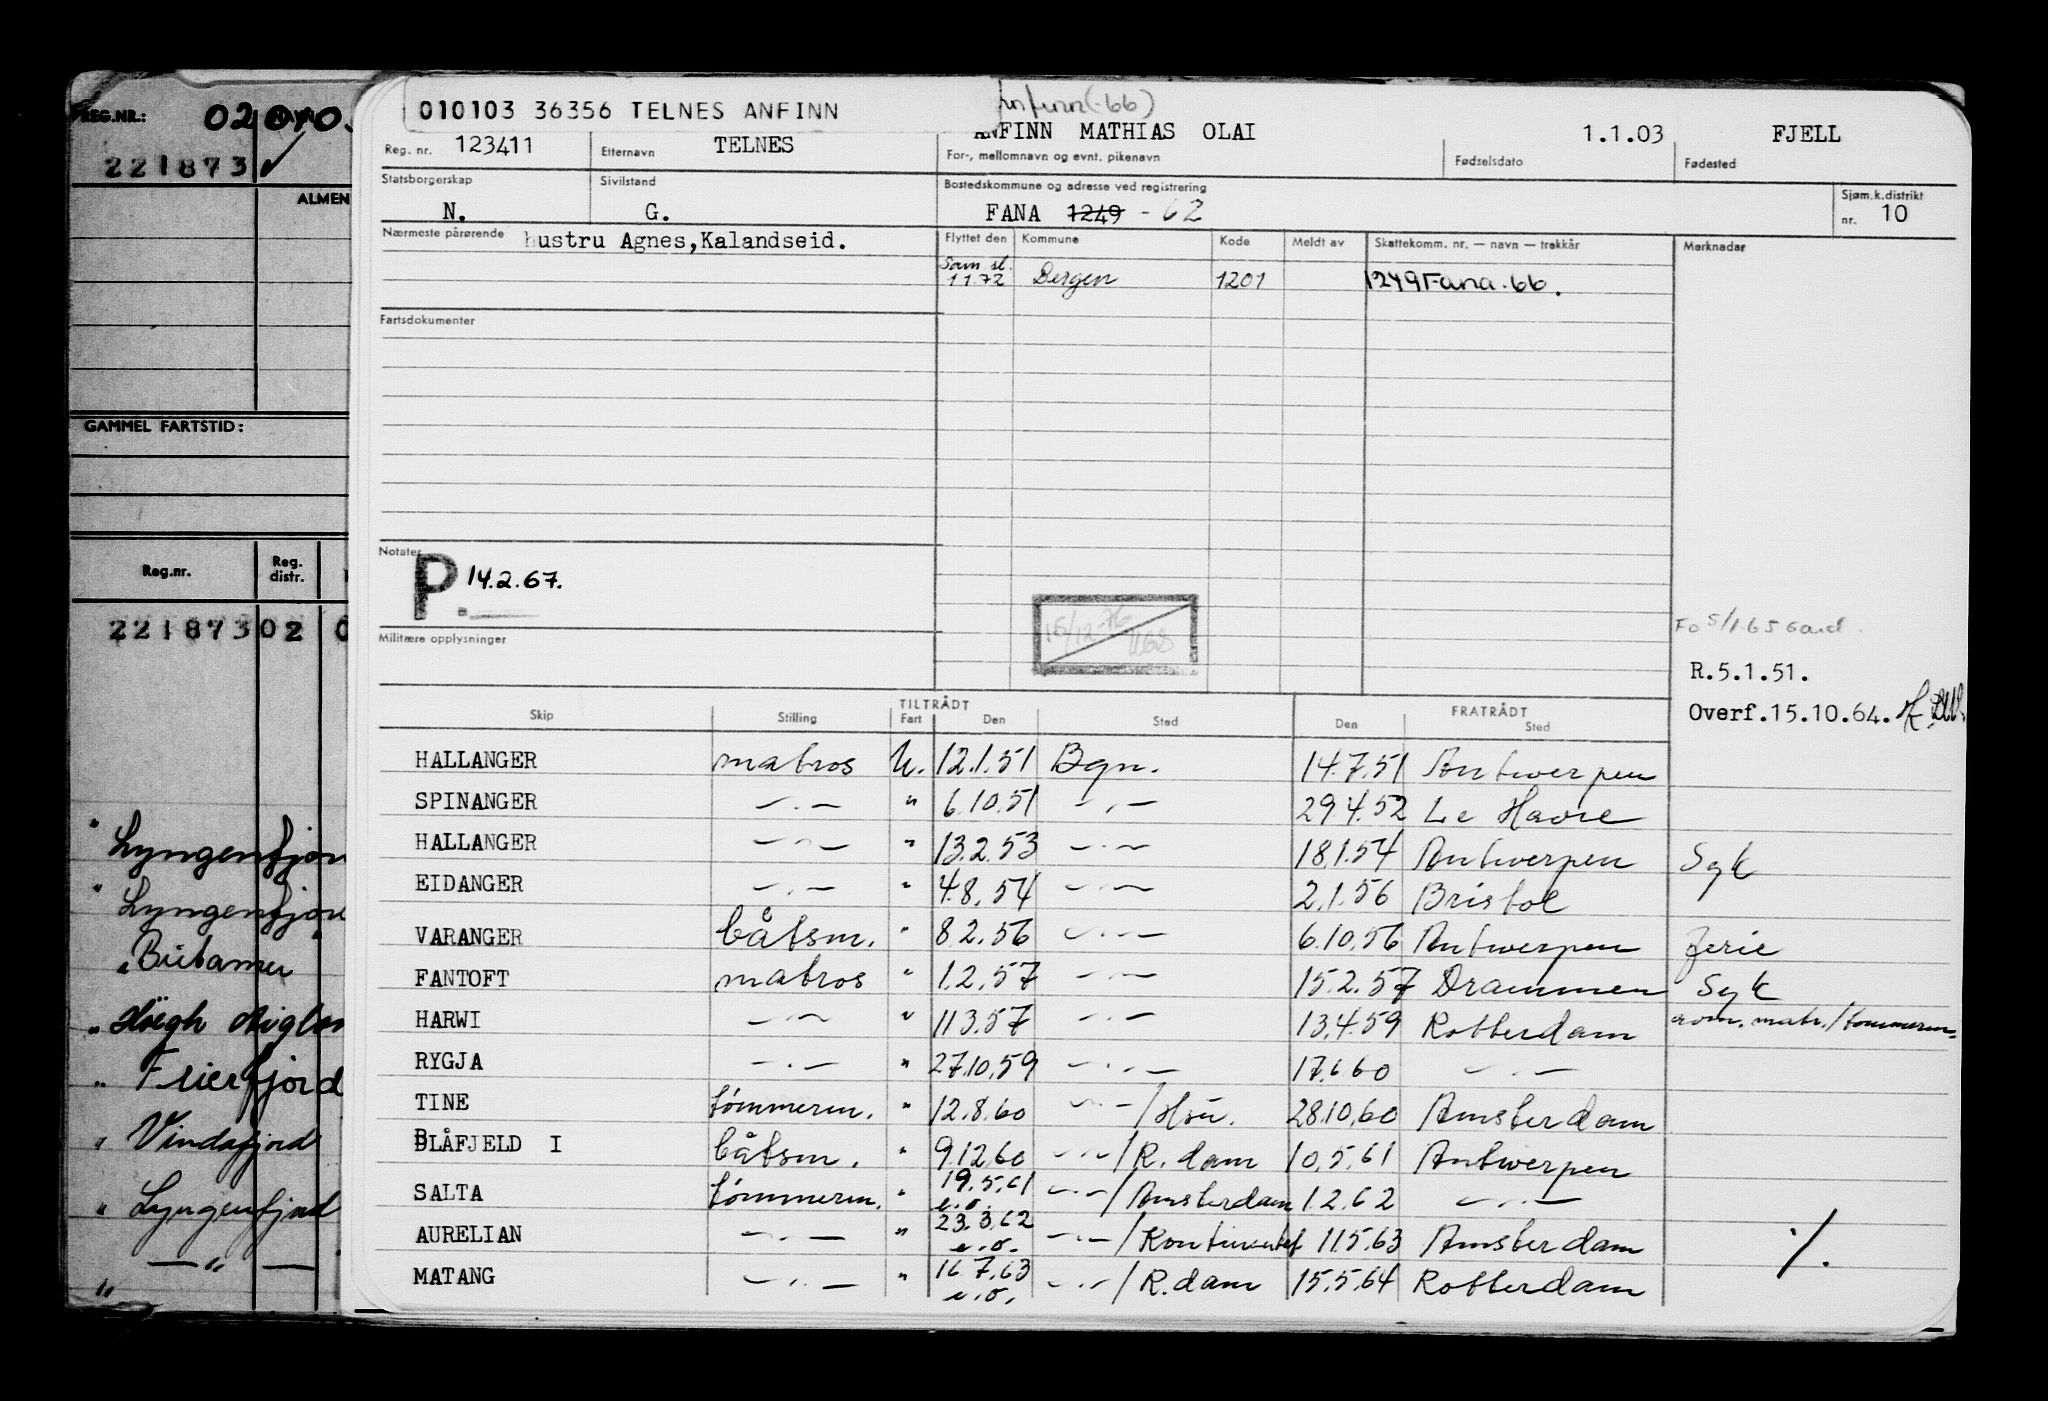 REG.NR.:
221873
ALMEN
GAMMEL FARTSTID:
Reg.nr.
Reg. distr.
22187302
" Lyngenfjor
" Lyngenfjor
" Høegh
" Freierfjord
" Vindafjord
" Lyngenfjord
— " —
"
010103 36356 TELNES ANFINN
Anfinn (-66)
Reg. nr. 123411 Etternavn TELNES ANFINN MATHIAS OLAI 1.1.03 FJELL
For-, mellomnavn og evnt. pikenavn Fødselsdato Fødested
Statsborgerskap Sivilstand Bostedskommune og adresse ved registrering Sjøm.k.distrikt
N. G. FANA 1249 - 62 nr. 10
Nærmeste pårørende hustru Agnes,Kalandseid. Flyttet den Kommune Kode Meldt av Skattekomm. nr. — navn — trekkår Merknader
Sam sl.
1.1.72 Bergen 1201 1249 Fana-66.
Fartsdokumenter
Notater
P 14.2.67.
15/12-76
Militære opplysninger
Fo 5/1.65
R.5.1.51.
Overf.15.10.64.
TILTRÅDT FRATRÅDT
Skip Stilling Fart Den Sted Den Sted
HALLANGER matros U. 12.1.51 Bgn. 14.7.51 Antwerpen
SPINANGER —.— " 6.10.51 —.— 29.4.52 Le Havre
HALLANGER —.— " 13.2.53 —.— 18.1.54 Antwerpen Syk
EIDANGER —.— " 4.8.54 —.— 2.1.56 Bristol
VARANGER båtsm. " 8.2.56 —.— 6.10.56 Antwerpen ferie
FANTOFT matros " 1.2.57 —.— 15.2.57 Drammen Syk
HARWI —.— " 11.3.57 —.— 13.4.59 Rotterdam avm. matr./tømmerm.
RYGJA —.— " 27.10.59 —.— 17.6.60 —.—
TINE tømmerm. " 12.8.60 —.—/Hsu. 28.10.60 Amsterdam
BLÅFJELD I båtsm. " 9.12.60 —.—/R.dam 10.5.61 Antwerpen
SALTA tømmerm. " 19.5.61 e.o. —.—/Amsterdam 1.2.62 —.—
AURELIAN —.— " 23.3.62 e.o. —.—/Kontinentet 11.5.63 Amsterdam
MATANG —.— " 16.7.63 e.o. —.—/R.dam 15.5.64 Rotterdam
./.